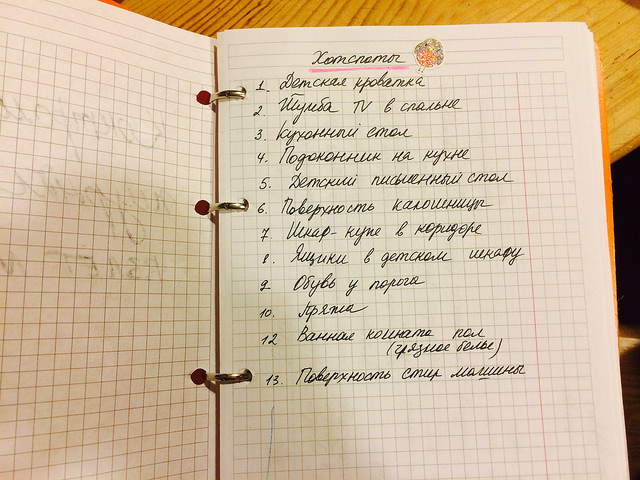 Хотспоты
1. Детская кроватка
2. Тумба TV в спальне
3. Кухонный стол
4. Подоконник на кухне
5. Детский письменный стол
6. Поверхность калошницы
7. Шкаф-купе в коридоре
8. Ящики в детском шкафу
9. Обувь у порога
10. Пряжа
12 Ванная комната пол
(грязное белье)
13. Поверхность стир машины